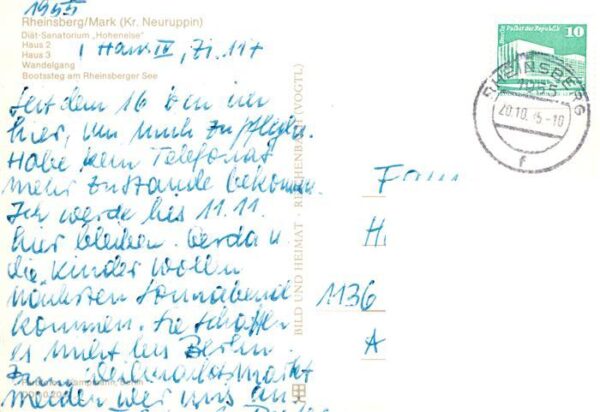 1955
Rheinsberg/Mark (Kr. Neuruppin)
Diät-Sanatorium „Hoheneise"
Haus 2
Haus 3
Wandelgang
Bootssteg am Rheinsberger See
Haus IV, Zi. 117
Seit dem 16 bin ich
hier, um mich zu pflegen.
Habe kein Telefonat
mehr zustande bekommen.
Ich werde bis 11.11.
hier bleiben. Gerda u
die Kinder wollen
nächsten Sonnabend
kommen. Sie schaffen
es nicht bis Berlin.
Zum Weihnachtsmarkt
melden wir uns an
BILD UND HEIMAT · REICHENBACH (VOGTL)
10
Palast der Republik
RHEINSBERG
1955
20.10.85-10
f
Frau
H
1136
A